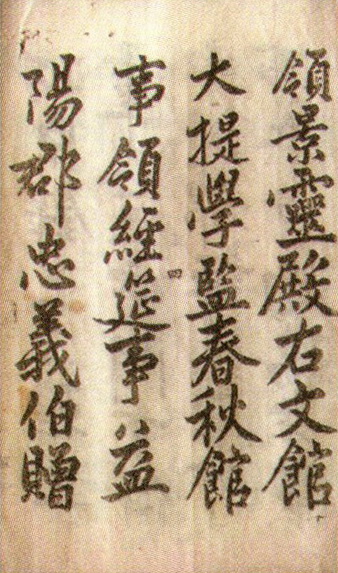 領景靈殿右文館
大提學監春秋館
事領經筵事益
陽郡忠義伯贈